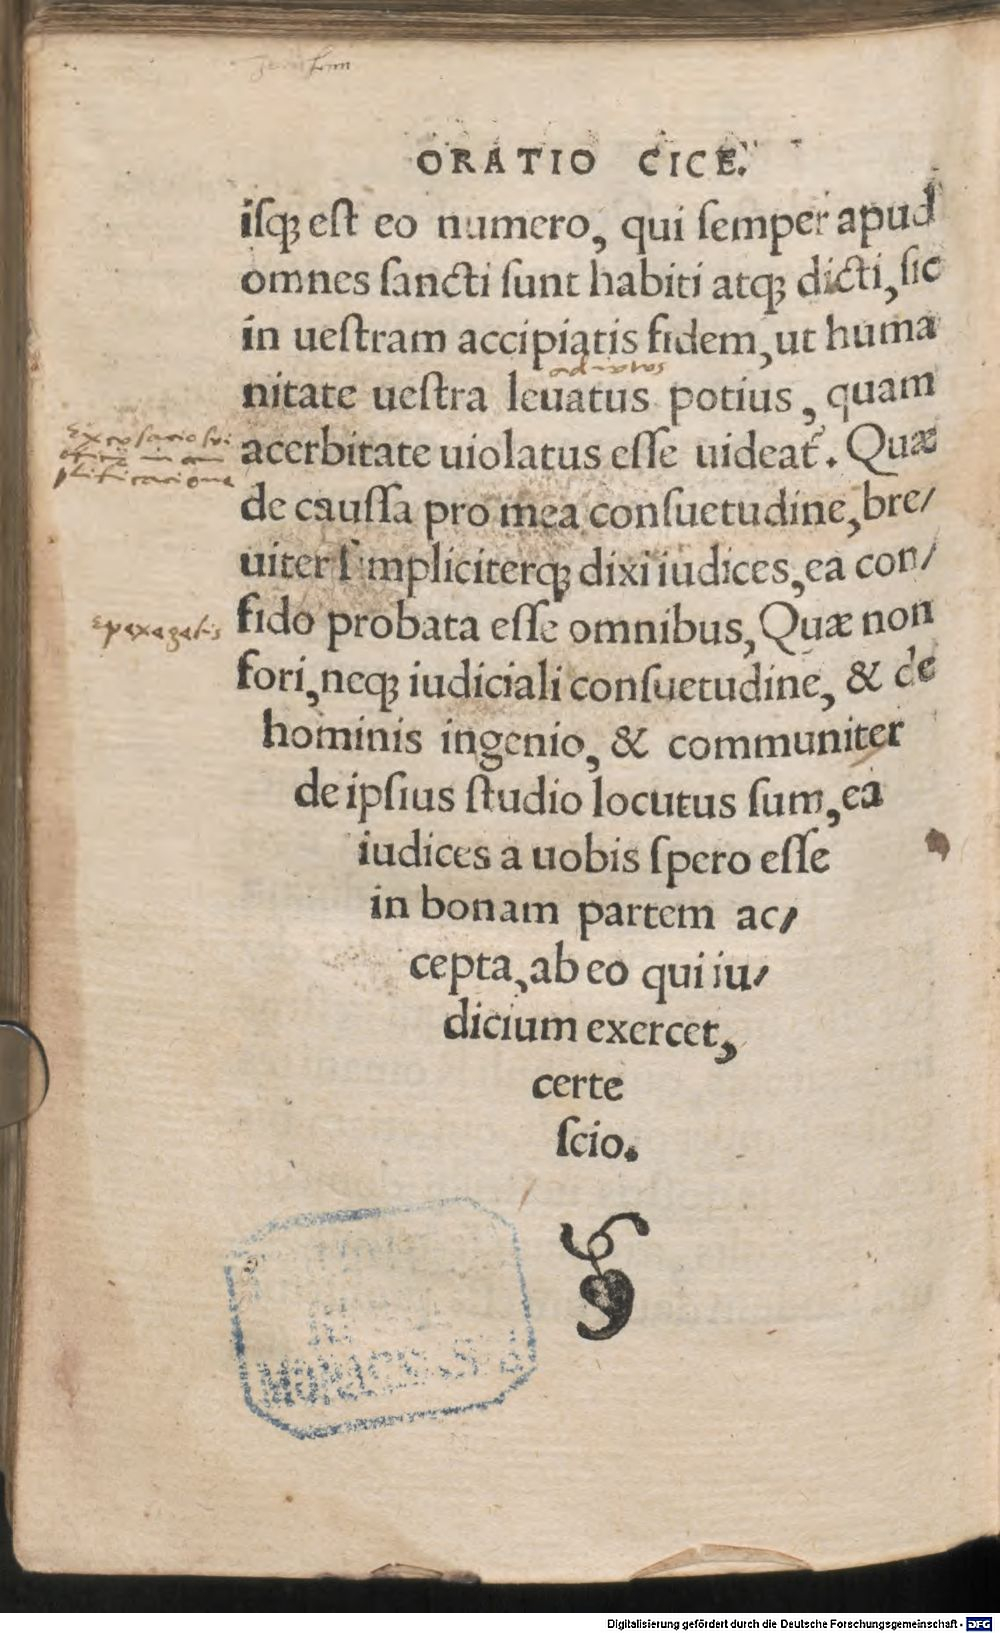 ORATIO CICE.
iſqꝫ eſt eo numero, qui ſemper apud
omnes ſancti ſunt habiti atqꝫ dicti, ſic
in ueſtram accipiatis fidem, ut huma
nitate ueſtra leuatus potius, quam
acerbitate uiolatus eſſe uideat᷑. Quæ
de cauſſa pro mea conſuetudine, bre/
uiter ſimpliciterqꝫ dixi iudices, ea con/
fido probata eſſe omnibus, Quæ non
fori, neqꝫ iudiciali conſuetudine, & de
hominis ingenio, & communiter
de ipſius ſtudio locutus ſum, ea
iudices a uobis ſpero eſſe
in bonam partem ac/
cepta, ab eo qui iu/
dicium exercet,
certe
ſcio.
Digitalisierung gefördert durch die Deutsche Forschungsgemeinschaft - DFG